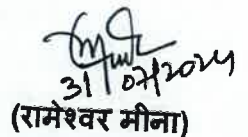 31/07/2024
(रामेश्वर मीना)